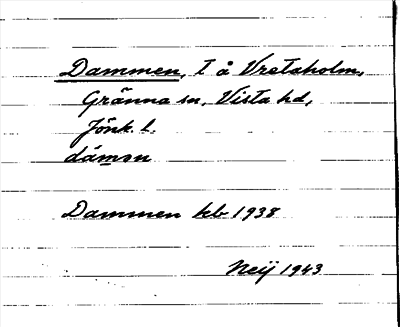 Dammen, t å Vretaholm,
Gränna sn, Vista hd,
Jönk. l.
dámən
Dammen kb 1938
Neij 1943